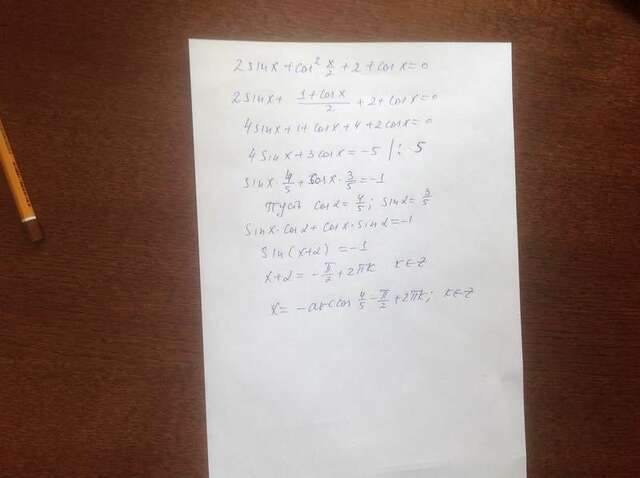 2sinx + cos² x/2 + 2 + cosx = 0
2sinx + (1+cosx)/2 + 2 + cosx = 0
4sinx + 1 + cosx + 4 + 2cosx = 0
4sinx + 3cosx = -5 | : 5
sinx · 4/5 + cosx · 3/5 = -1
Пусть cosα = 4/5; sinα = 3/5
sinx · cosα + cosx · sinα = -1
sin(x+α) = -1
x+α = -π/2 + 2πk k∈Z
x = -arccos 4/5 - π/2 + 2πk; k∈Z